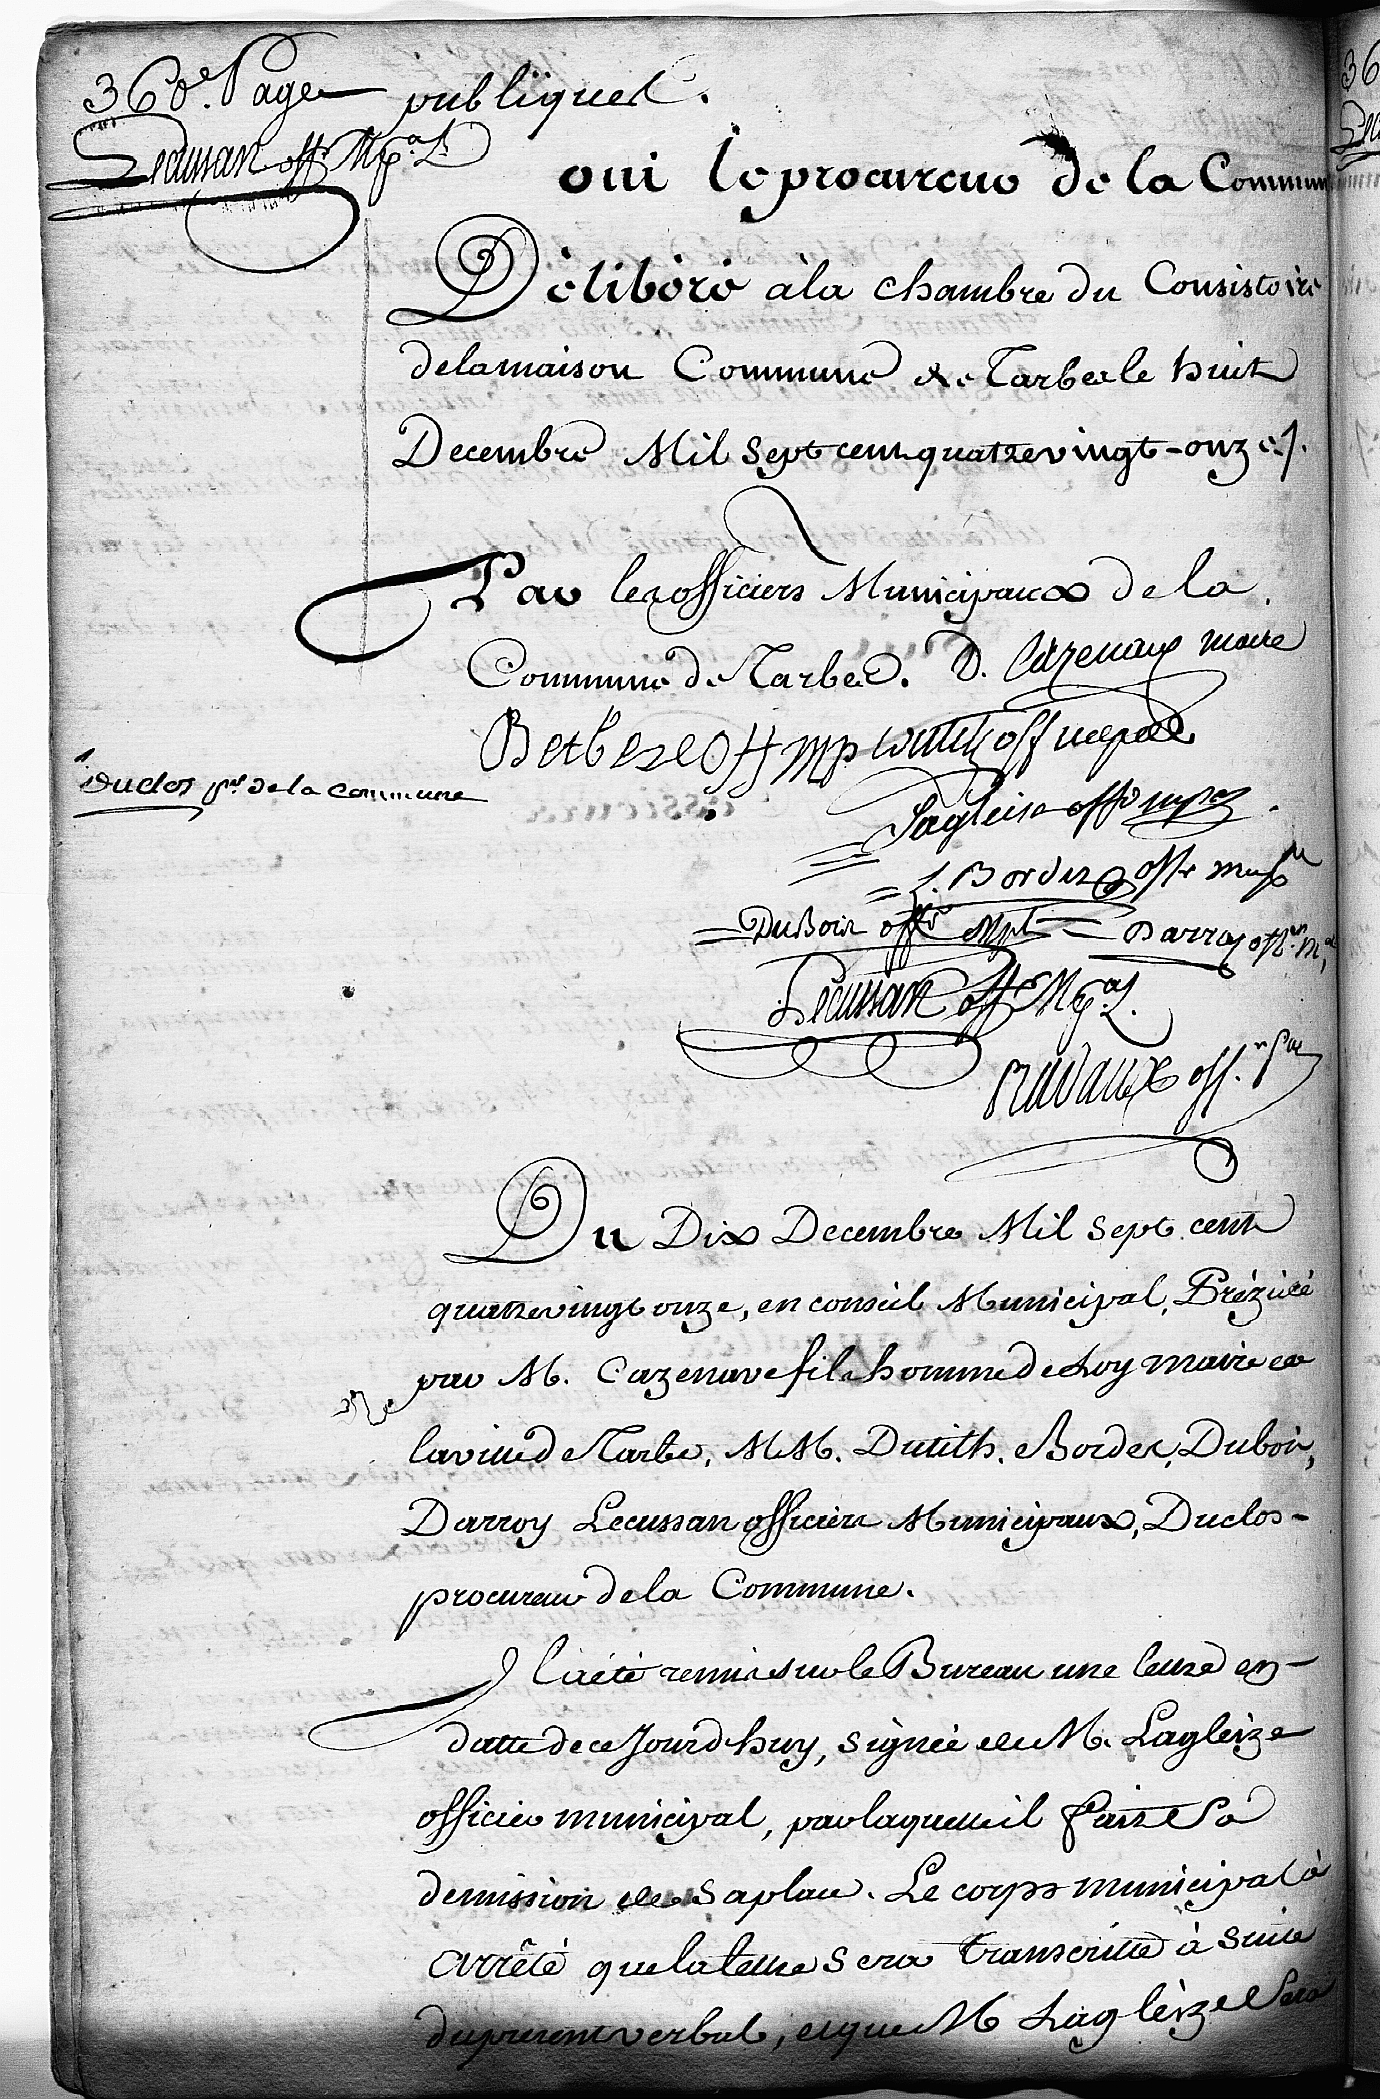 360e. Page
Lecussan off. Mpal.
publiques.
oui le procureur de la Commune
Déliberé à la Chambre du Consistoire
de la maison Commune de Tarbes le huit
Decembre Mil Sept cent quatrevingt-onze.
Par les officiers Municipaux de la
Commune de Tarbes. D. Cazenave maire
Betbeze off mp Dutilh off mpal
Duclos pr. de la commune
Lagleise offr mpal
L. Bordes offr mupl
Dubois offr Mpl Darroy offer. mpal
Lecussan offr Mpal.
off.
Du Dix Decembre Mil Sept cent
quatrevingt onze, en conseil Municipal, Prézidé
par M. Cazenave fils homme de Loy maire de
la ville de Tarbe, MM. Dutilh, Bordes, Dubois,
Darroy Lecussan officiers Municipaux, Duclos-
procureur de la Commune.
Il a été remis sur le Bureau une lettre en-
datte de ce Jourd'huy, signée de M. Lagleize
officier municipal, par laquelle il Fait Sa
demission de sa place. Le corps municipal a
arrêté que la lettre sera transcritte à suite
du present verbal, et que M Lagleize Sera